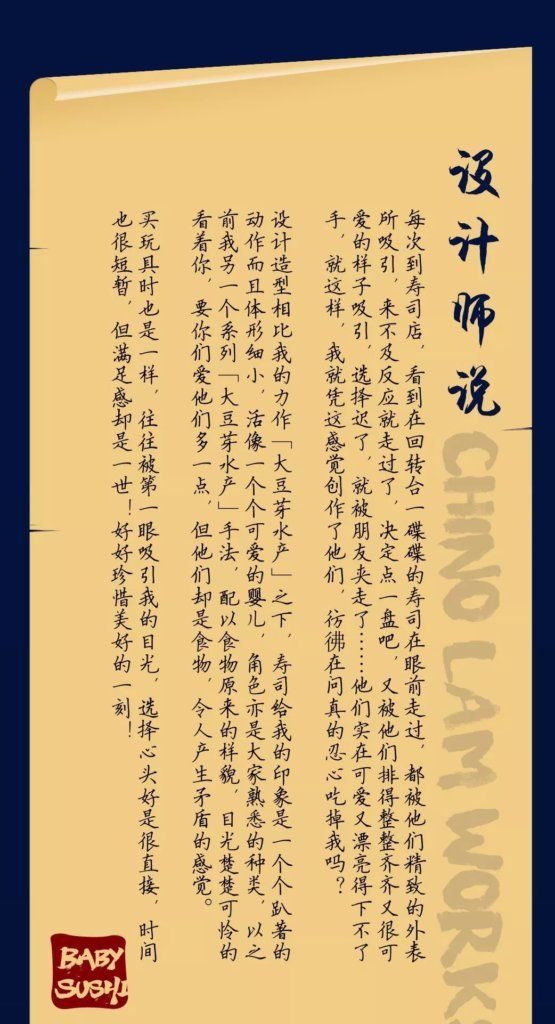 设计师说
CHINO LAM WORKS
每次到寿司店，看到在回转台一碟碟的寿司在眼前走过，都被他们精致的外表
所吸引，来不及反应就走过了，决定点一盘吧，又被他们排得整整齐齐又很可
爱的样子吸引，选择迟了，就被朋友夹走了……他们实在可爱又漂亮得下不了
手，就这样，我就凭这感觉创作了他们，彷彿在问真的忍心吃掉我吗？
设计造型相比我的力作「大豆芽水产」之下，寿司给我的印象是一个个趴著的
动作而且体形细小，活像一个个可爱的婴儿，角色亦是大家熟悉的种类，以之
前我另一个系列「大豆芽水产」手法，配以食物原来的样貌，目光楚楚可怜的
看着你，要你们爱他们多一点，但他们却是食物，令人产生矛盾的感觉。
买玩具时也是一样，往往被第一眼吸引我的目光，选择心头好是很直接，时间
也很短暂，但满足感却是一世！好好珍惜美好的一刻！
BABY
SUSHI